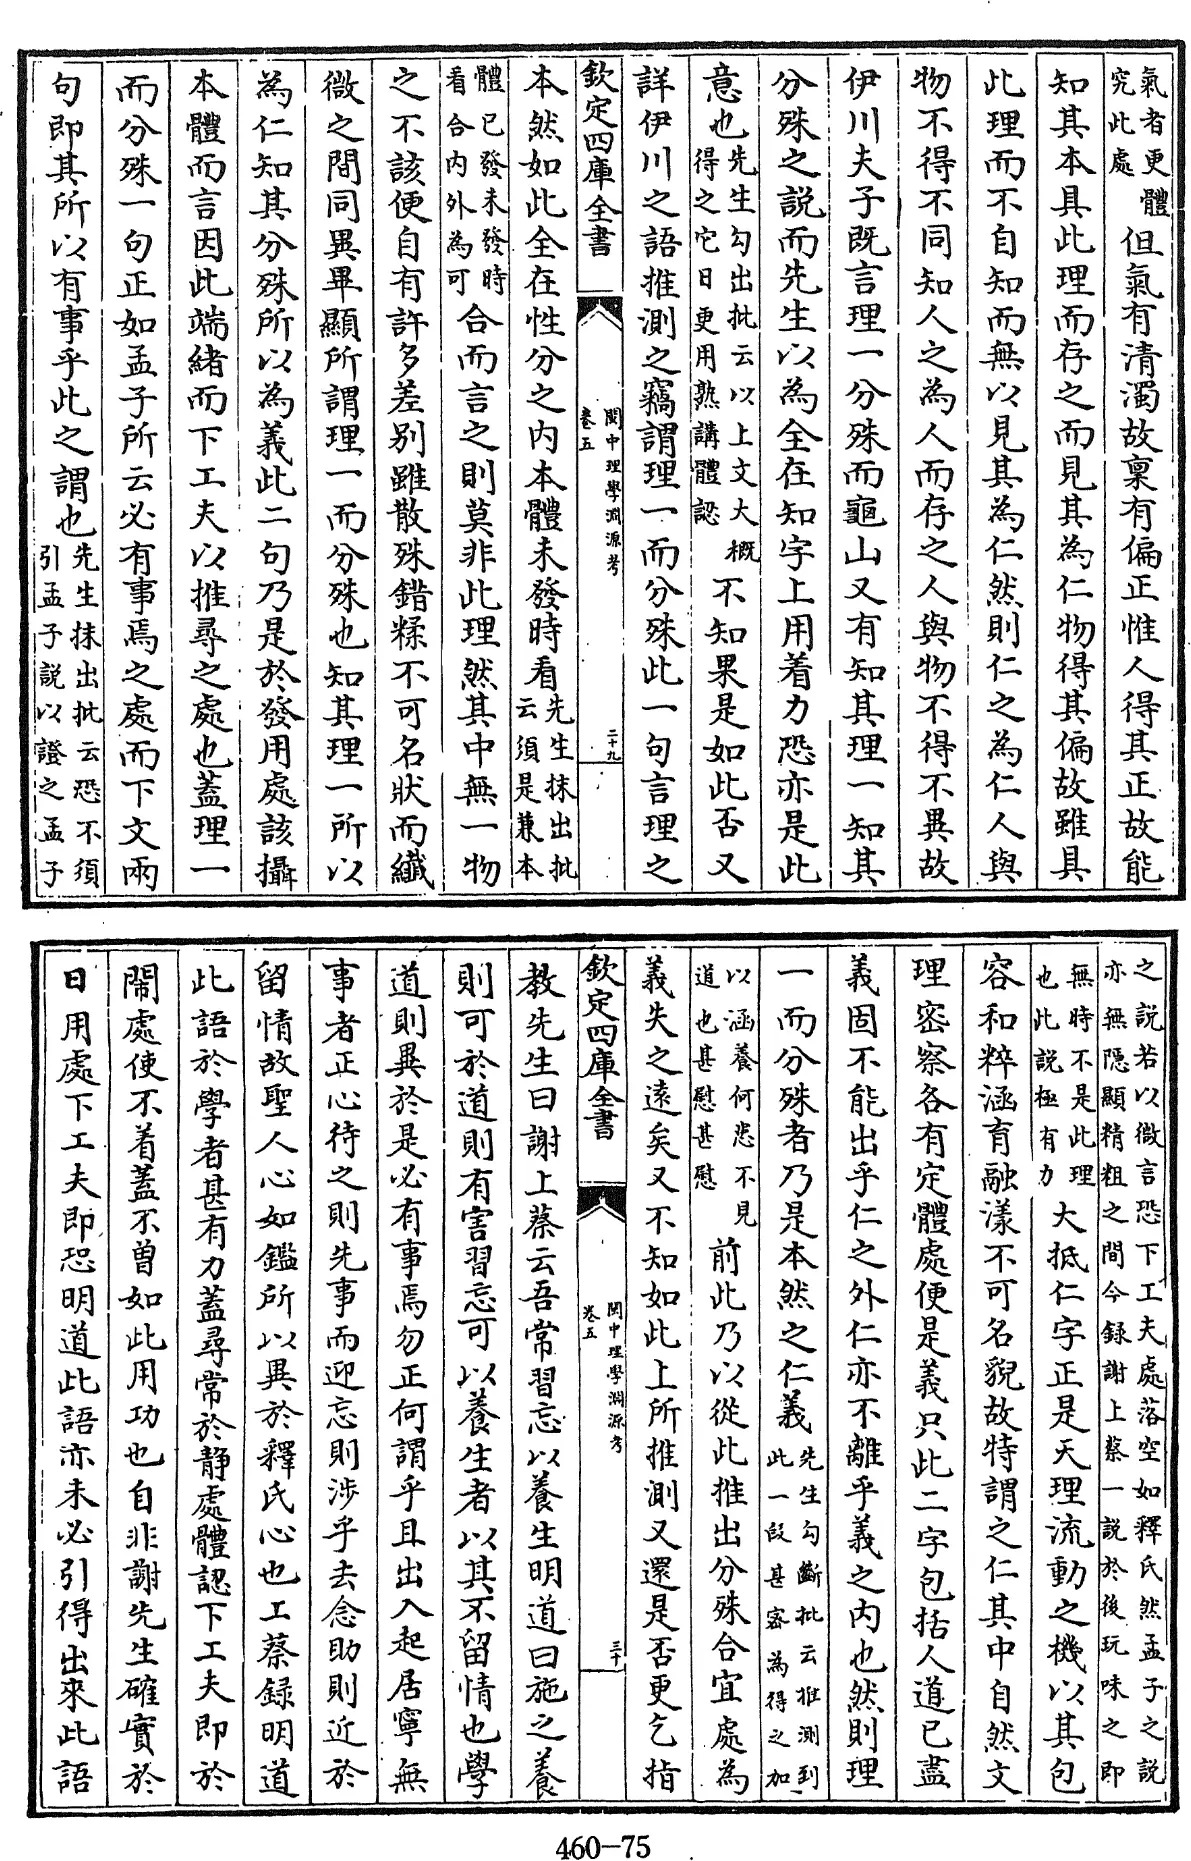 氣者更體
究此處
但氣有清濁故稟有偏正惟人得其正故能
知其本具此理而存之而見其為仁物得其偏故雖具
此理而不自知而無以見其為仁然則仁之為仁人與
物不得不同知人之為人而存之人與物不得不異故
伊川夫子既言理一分殊而龜山又有知其理一知其
分殊之說而先生以為全在知字上用着力恐亦是此
意也
先生勾出批云以上文大概
得之它日更用熟講體認
不知果是如此否又
詳伊川之語推測之竊謂理一而分殊此一句言理之
欽定四庫全書
閩中理學淵源考
卷五
二十九
本然如此全在性分之內本體未發時看
先生抹出批
云須是兼本
體已發未發時
看合內外為可
合而言之則莫非此理然其中無一物
之不該便自有許多差别雖散殊錯糅不可名狀而纖
微之間同異畢顯所謂理一而分殊也知其理一所以
為仁知其分殊所以為義此二句乃是於發用處該攝
本體而言因此端緒而下工夫以推尋之處也蓋理一
而分殊一句正如孟子所云必有事焉之處而下文兩
句即其所以有事乎此之謂也
先生抹出批云恐不須
引孟子說以證之孟子
之說若以微言恐下工夫處落空如釋氏然孟子之說
亦無隱顯精粗之間今録謝上蔡一說於後玩味之即
無時不是此理
也此說極有力
大抵仁字正是天理流動之機以其包
容和粹涵育融漾不可名貌故特謂之仁其中自然文
理密察各有定體處便是義只此二字包括人道已盡
義固不能出乎仁之外仁亦不離乎義之內也然則理
一而分殊者乃是本然之仁義
先生勾斷批云推測到
此一段甚密為得之加
以涵養何患不見
道也甚慰甚慰
前此乃以從此推出分殊合宜處為
義失之遠矣又不知如此上所推測又還是否更乞指
欽定四庫全書
閩中理學淵源考
卷五
三十
教先生曰謝上蔡云吾常習忘以養生明道曰施之養
則可於道則有害習忘可以養生者以其不留情也學
道則異於是必有事焉勿正何謂乎且出入起居寧無
事者正心待之則先事而迎忘則涉乎去念助則近於
留情故聖人心如鑑所以異於釋氏心也上蔡録明道
此語於學者甚有力蓋尋常於静處體認下工夫即於
鬧處使不着蓋不曾如此用功也自非謝先生確實於
日用處下工夫即恐明道此語亦未必引得出來此語
460-75